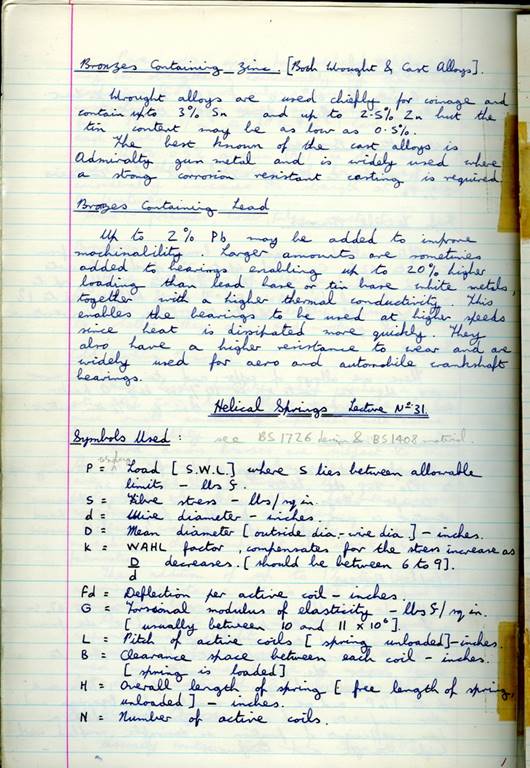 Bronzes Containing Zinc. [Both Wrought & Cast Alloys].
Wrought alloys are used chiefly for coinage and
contain upto 3% Sn and up to 2.5% Zn but the
tin content may be as low as 0.5%.
The best known of the cast alloys is
Admiralty gun metal and is widely used where
a strong corrosion resistant casting is required
Brozes Containing Lead
Up to 2% Pb may be added to improve
machinability. Larger amounts are sometimes
added to bearings enabling up to 20% higher
loading than lead base or tin base white metals,
together with a higher thermal conductivity. This
enables the bearings to be used at higher speeds
since heat is dissipated more quickly. They
also have a higher resistance to wear and are
widely used for aero and automobile crankshaft
bearings.
Helical Springs Lecture No 31.
Symbols Used : see BS1726 design & BS1408 material.
P = Load [S.W.L.] where S lies between allowable
limits - lbs f.
S = Fibre stress - lbs/sq in.
d = Wire diameter - inches.
D = Mean diameter [outside dia. - wire dia] - inches.
K = WAHL factor, compensates for the stress increase as
D/d decreases. [should be between 6 to 9].
Fd = Deflection per active coil - inches.
G = Torsional modulus of elasticity - lbs f/sq in.
[usually between 10 and 11 x 10⁶].
L = Pitch of active coils [spring unloaded] - inches.
B = Clearance space between each coil - inches.
[spring is loaded]
H = Overall length of spring [free length of spring,
unloaded] - inches.
N = Number of active coils.